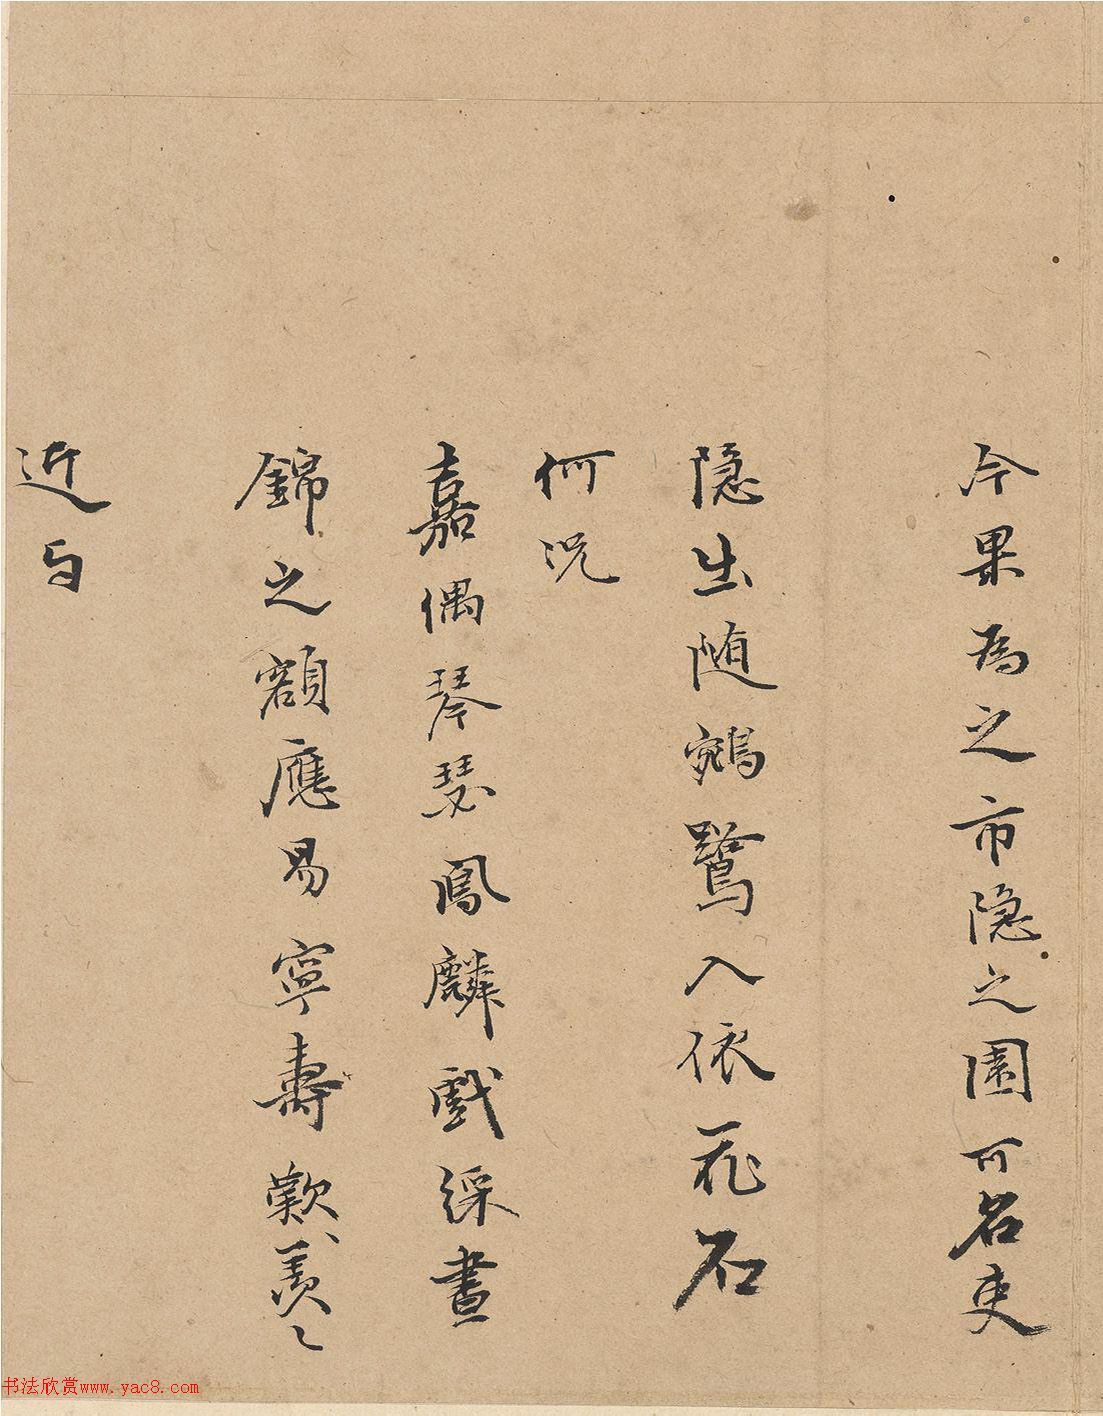 今果為之市隐之園可名吏
隐出随鵷鷺入依花石
何况
嘉偶琴瑟鳳麟戲綵晝
錦之額應易寧壽歎羨〻
近与
书法欣赏www.yac8.com